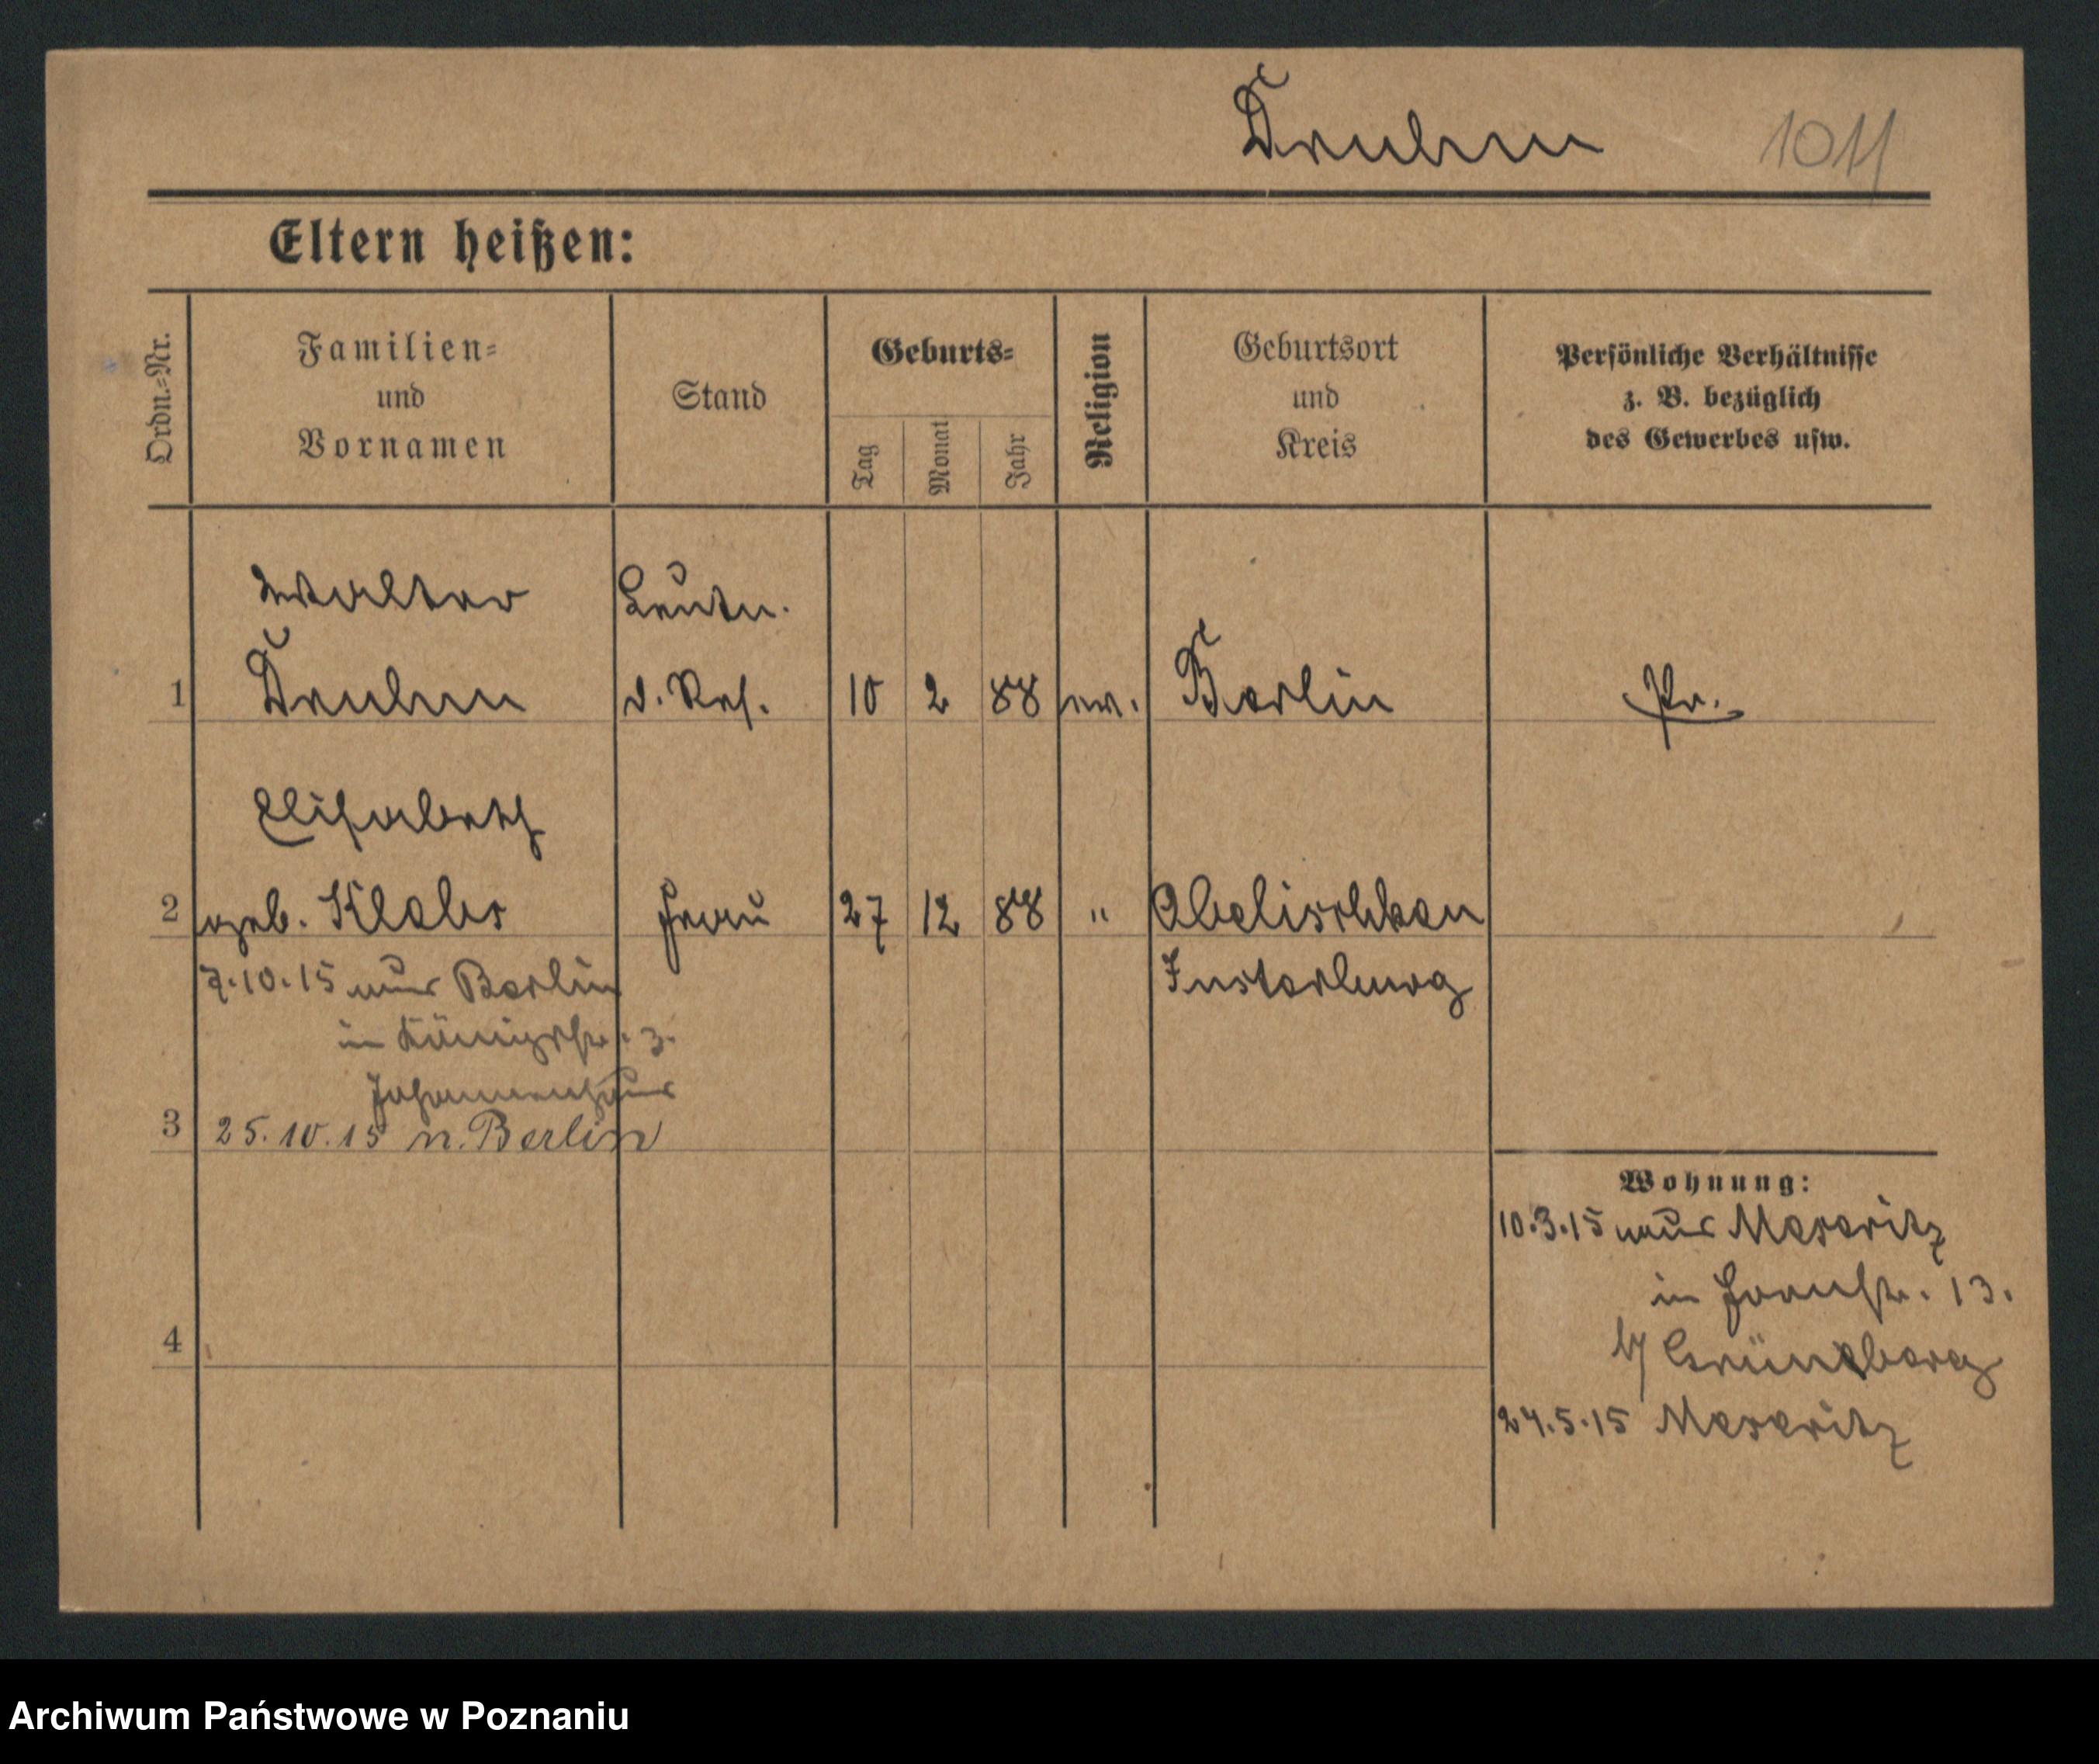 1011
Eltern heißen:
Ordn.-Nr.
Familien-
und
Vornamen
Stand
Geburts-
Tag
Monat
Jahr
Religion
Geburtsort
und
Kreis
Persönliche Verhältnisse
z. B. bezüglich
des Gewerbes usw.
Walter
Leutn.
1 d. Res. 10 2 88 ev. Berlin Pr.
Elisabeth
2 geb. Klebs Frau 27 12 88 " Abelischken
7.10.15 aus Berlin
Insterburg
in Königstr. 3.
Johannenhaus
3 25.10.15 n. Berlin
Wohnung:
10.3.15 aus Meseritz
in 13.
4 b/ Grünberg
24.5.15 Meseritz
Archiwum Państwowe w Poznaniu